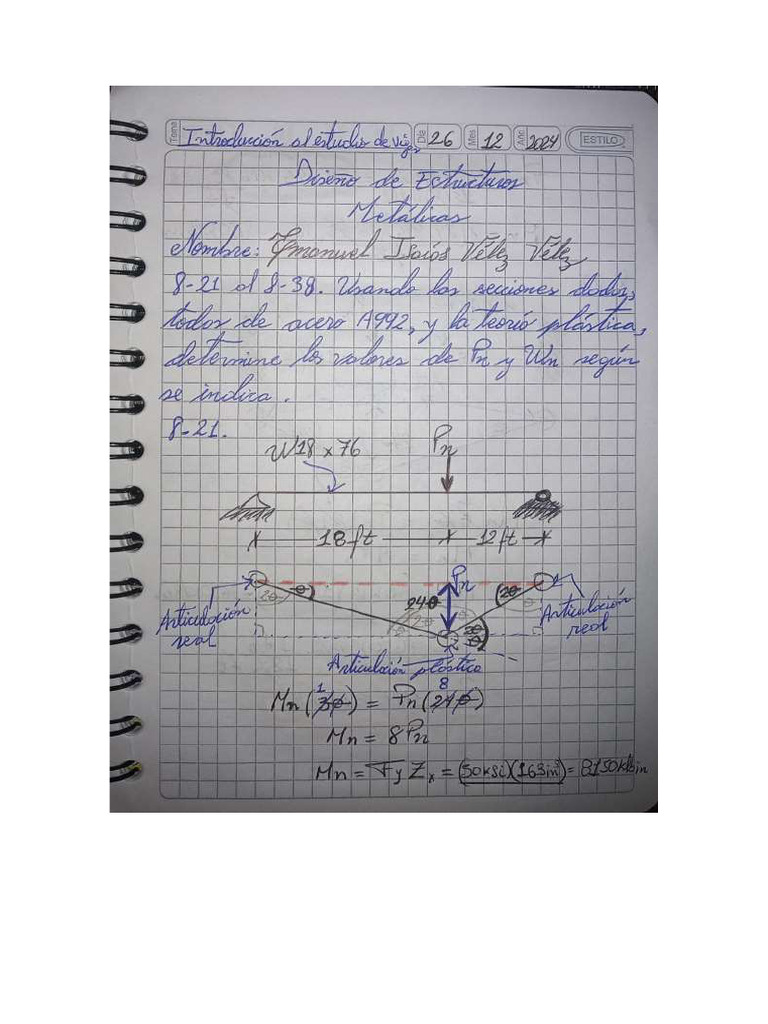 Tema Introducción al estudio de vigas Día 26 Mes 12 Año 2024 ESTILO
Diseño de Estructuras
Metálicas
Nombre: Emanuel Isaías Vélez Vélez
8-21 al 8-38. Usando las secciones dadas,
todas de acero A992, y la teoría plástica,
determine los valores de Pn y Wn según
se indica.
8-21.
W18 x 76 Pn
18ft 12ft
Pn
2θ θ 24θ 2θ
Articulación real
Articulación real
Articulación plástica
1 8
Mn(3θ) = Pn(24θ)
Mn = 8Pn
Mn = Fy Zx = (50ksi)(163in³) = 8150klbin